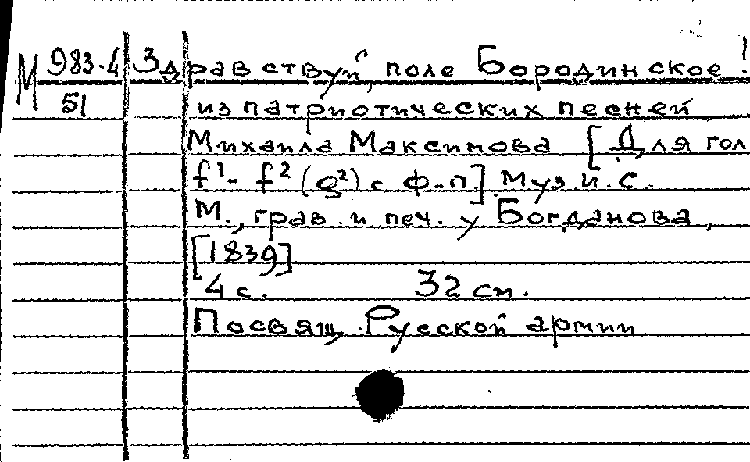 М 983-4 Здравствуй, поле Бородинское!
51 из патриотических песней
Михаила Максимова [Для гол
f¹- f² (g²) с ф-п] Муз. И. С.
М., грав. и печ. у Богданова,
[1839]
4 с. 32 см.
Посвящ. Русской армии